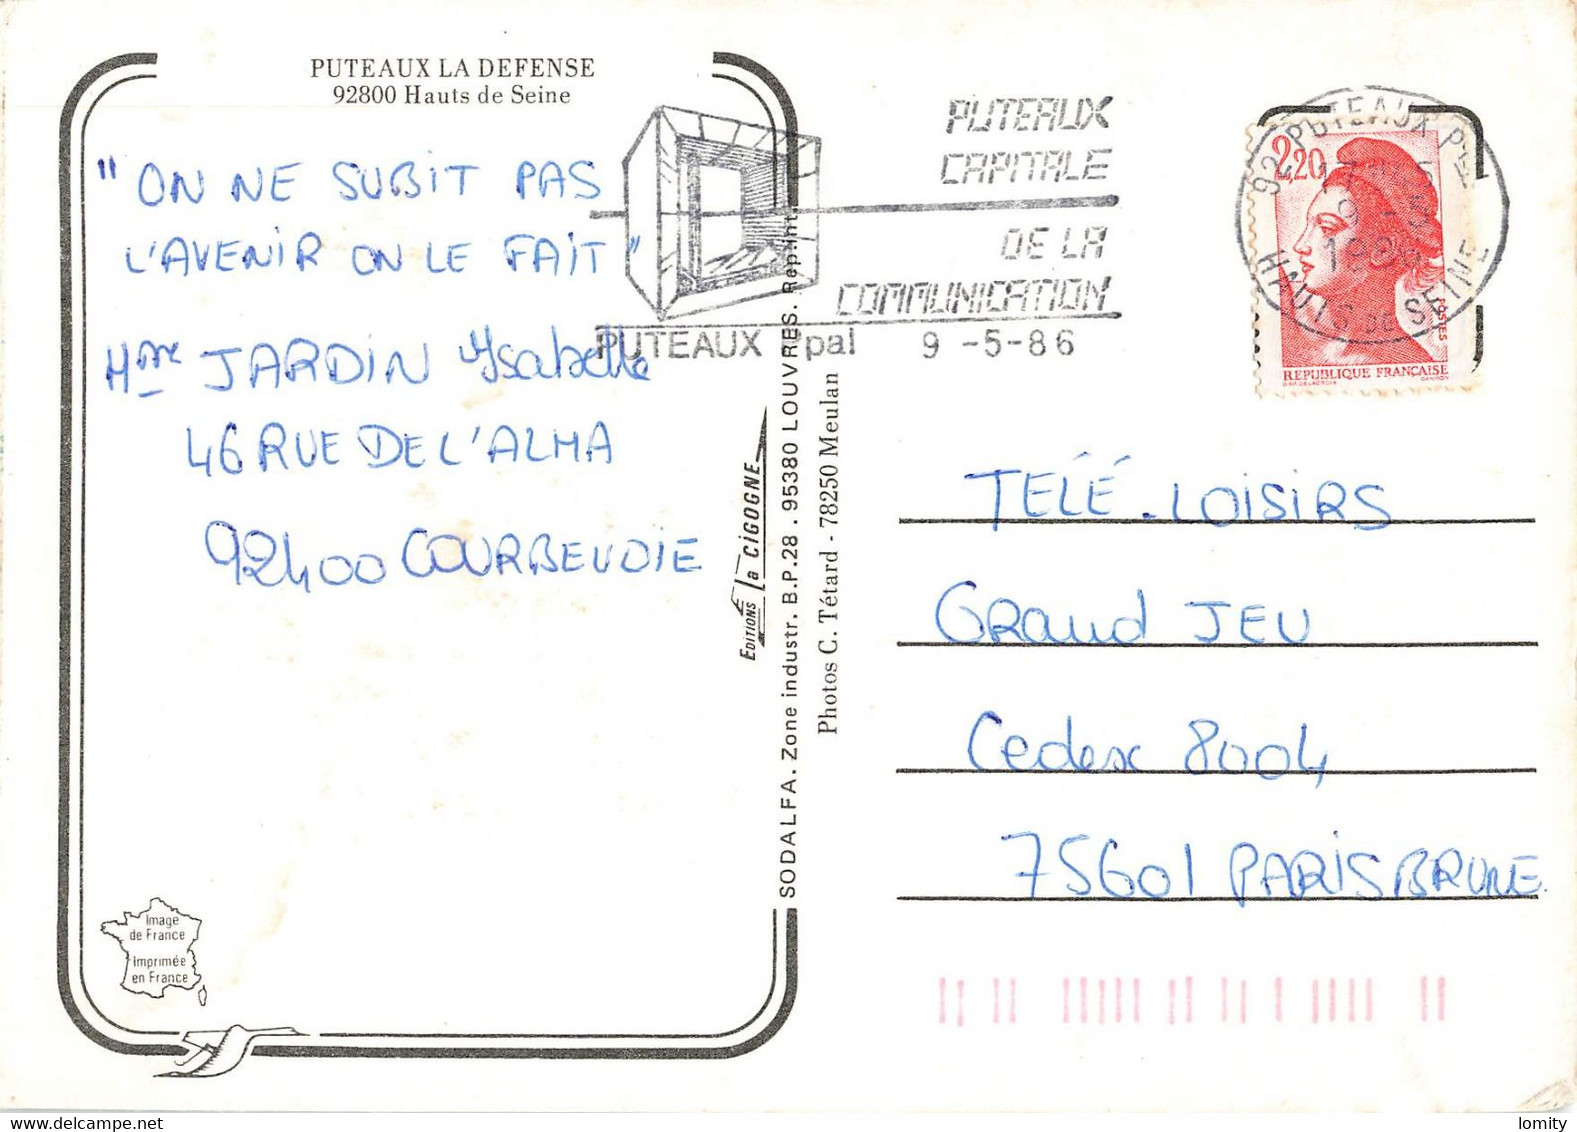 PUTEAUX LA DEFENSE
92800 Hauts de Seine
" ON NE SUBIT PAS
L'AVENIR ON LE FAIT "
Mme JARDIN Ysabelle
46 RUE DE L'ALMA
92400 COURBEVOIE
Image
de France
Imprimée
en France
PUTEAUX
CAPITALE
DE LA
COMMUNICATION
PUTEAUX Ppal 9 -5-86
EDITIONS La CIGOGNE
SODALFA. Zone industr. B.P.28 . 95380 LOUVRES. Rep.Int.
Photos C. Tétard - 78250 Meulan
92 PUTEAUX PAL
9 - 5
HAUTS DE SEINE
2,20
POSTES
REPUBLIQUE FRANCAISE
D'AP. DELACROIX GANDON
TELÉ-LOISIRS
GRAND JEU
Cedex 8004
75601 PARIS BRUNE
lomity